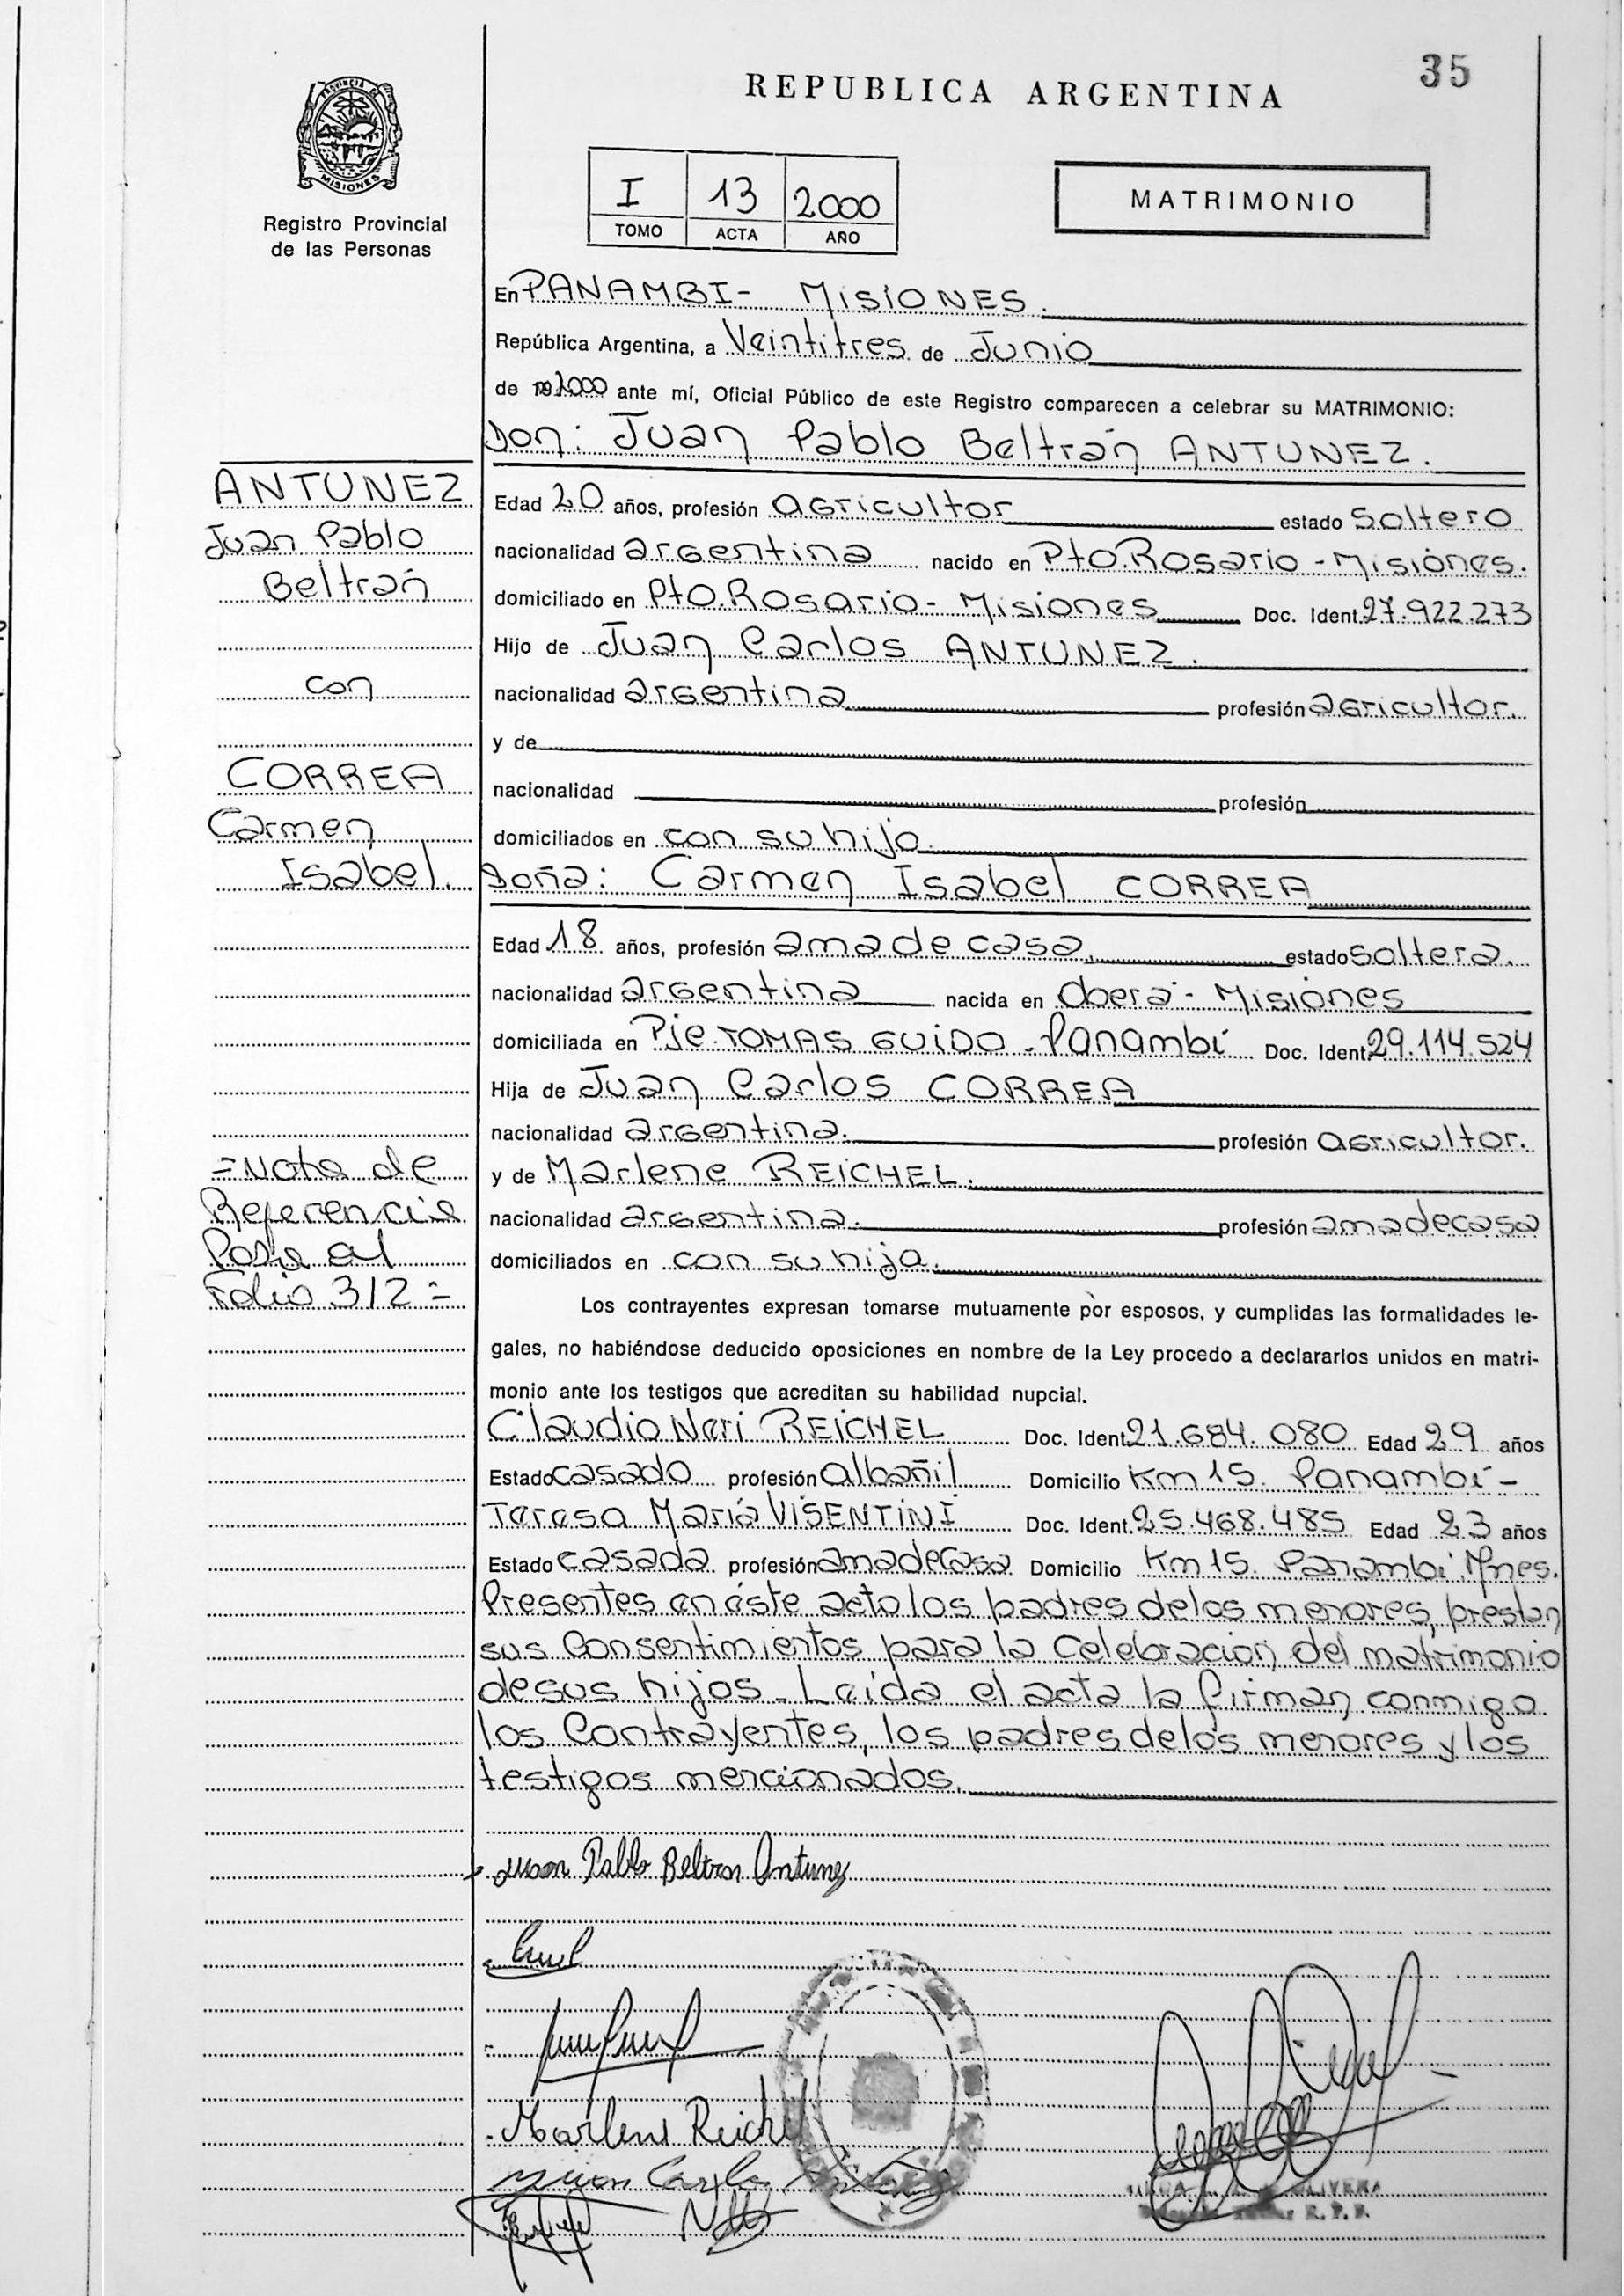 35
REPUBLICA ARGENTINA
PROVINCIA DE
MISIONES
Registro Provincial
de las Personas
I 13 2000
TOMO ACTA AÑO
MATRIMONIO
En PANAMBI - MISIONES.
República Argentina, a Veintitres de Junio
de 2000 ante mí, Oficial Público de este Registro comparecen a celebrar su MATRIMONIO:
Don: Juan Pablo Beltrán ANTUNEZ.
ANTUNEZ
Juan Pablo
Beltrán
con
CORREA
Carmen
Isabel.
Edad 20 años, profesión agricultor estado Soltero
nacionalidad argentina nacido en Pto. Rosario - Misiones.
domiciliado en Pto. Rosario - Misiones Doc. Ident. 27.922.273
Hijo de Juan Carlos ANTUNEZ.
nacionalidad argentina profesión agricultor.
y de
nacionalidad profesión
domiciliados en con su hijo.
Doña: Carmen Isabel CORREA
Edad 18 años, profesión ama de casa, estado soltera.
nacionalidad argentina nacida en Oberá - Misiones
domiciliada en Pje. TOMAS GUIDO - Panambí Doc. Ident. 29.114.524
Hija de Juan Carlos CORREA
nacionalidad argentina. profesión agricultor.
y de Marlene REICHEL.
nacionalidad argentina. profesión ama de casa
domiciliados en con su hija.
=Nota de
Referencia
Pasa al
Folio 312=
Los contrayentes expresan tomarse mutuamente por esposos, y cumplidas las formalidades le-
gales, no habiéndose deducido oposiciones en nombre de la Ley procedo a declararlos unidos en matri-
monio ante los testigos que acreditan su habilidad nupcial.
Claudio Neri REICHEL Doc. Ident. 21.684.080 Edad 29 años
Estado casado profesión albañil Domicilio Km 15. Panambí -
Teresa María VISENTINI Doc. Ident. 25.468.485 Edad 23 años
Estado casada profesión ama de casa Domicilio Km 15. Panambí. Mnes.
Presentes en éste acto los padres de los menores, prestan
sus Consentimientos para la Celebración del matrimonio
de sus hijos - Leída el acta la firman conmigo
los Contrayentes, los padres de los menores y los
testigos mencionados.
Juan Pablo Beltran Antunez
Marlene Reichel
Juan Carlos
OLIVERA
R. P. P.